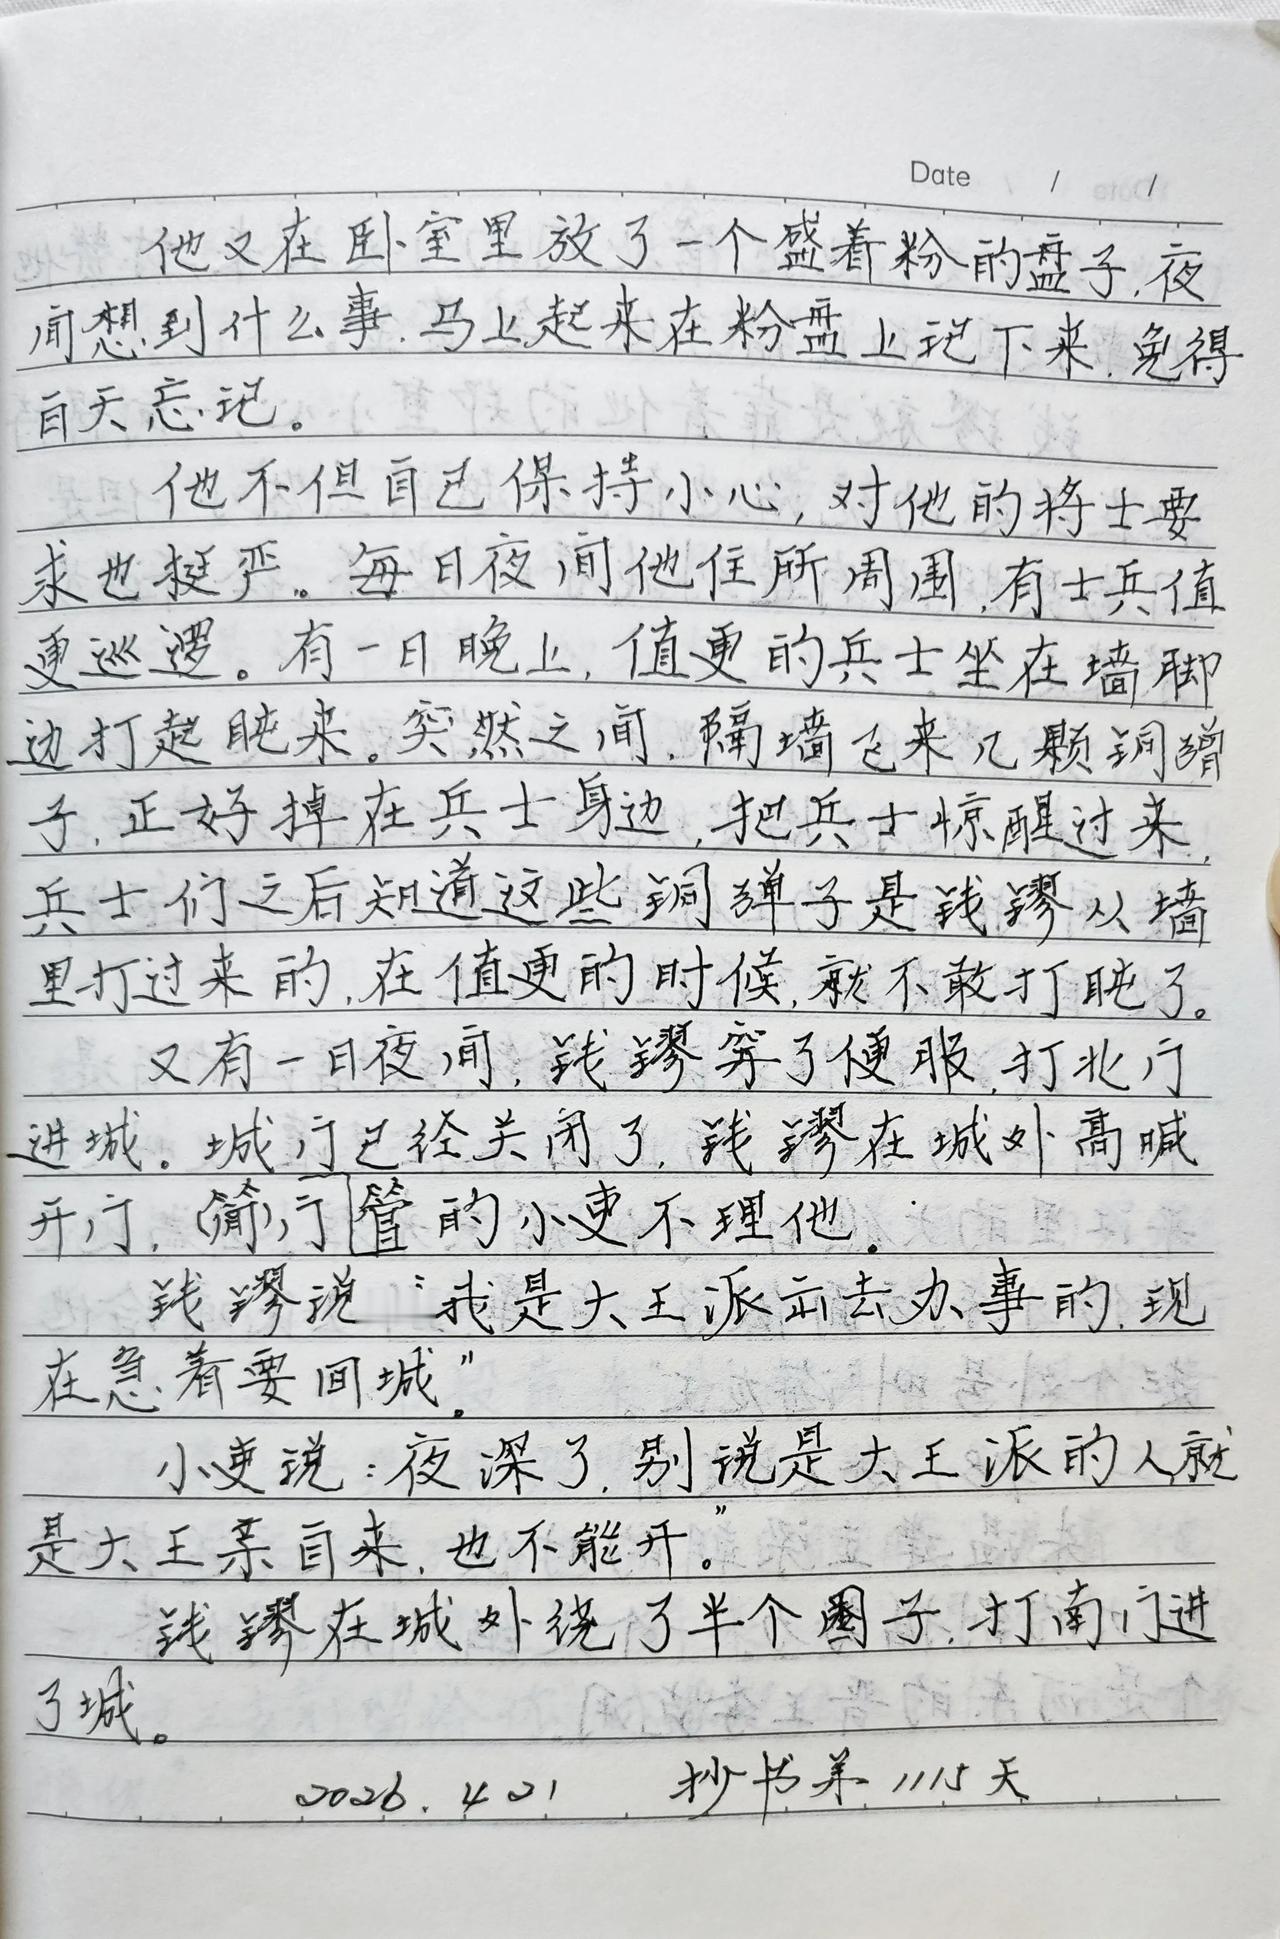 Date / /
他又在卧室里放了一个盛着粉的盘子,夜
间想到什么事,马上起来在粉盘上记下来,免得
白天忘记。
他不但自己保持小心,对他的将士要
求也挺严。每日夜间他住所周围,有士兵值
更巡逻。有一日晚上,值更的兵士坐在墙脚
边打起盹来。突然之间,隔墙飞来几颗铜弹
子,正好掉在兵士身边,把兵士惊醒过来,
兵士们之后知道这些铜弹子是钱镠从墙
里打过来的,在值更的时候,就不敢打盹了。
又有一日夜间,钱镠穿了便服,打北门
进城。城门已经关闭了,钱镠在城外高喊
开门,(简)门管的小吏不理他。
钱镠说:“我是大王派出去办事的,现
在急着要回城”。
小吏说:夜深了,别说是大王派的人,就
是大王亲自来,也不能开。”
钱镠在城外绕了半个圈子,打南门进
了城。
2026.4 21 抄书第1115天